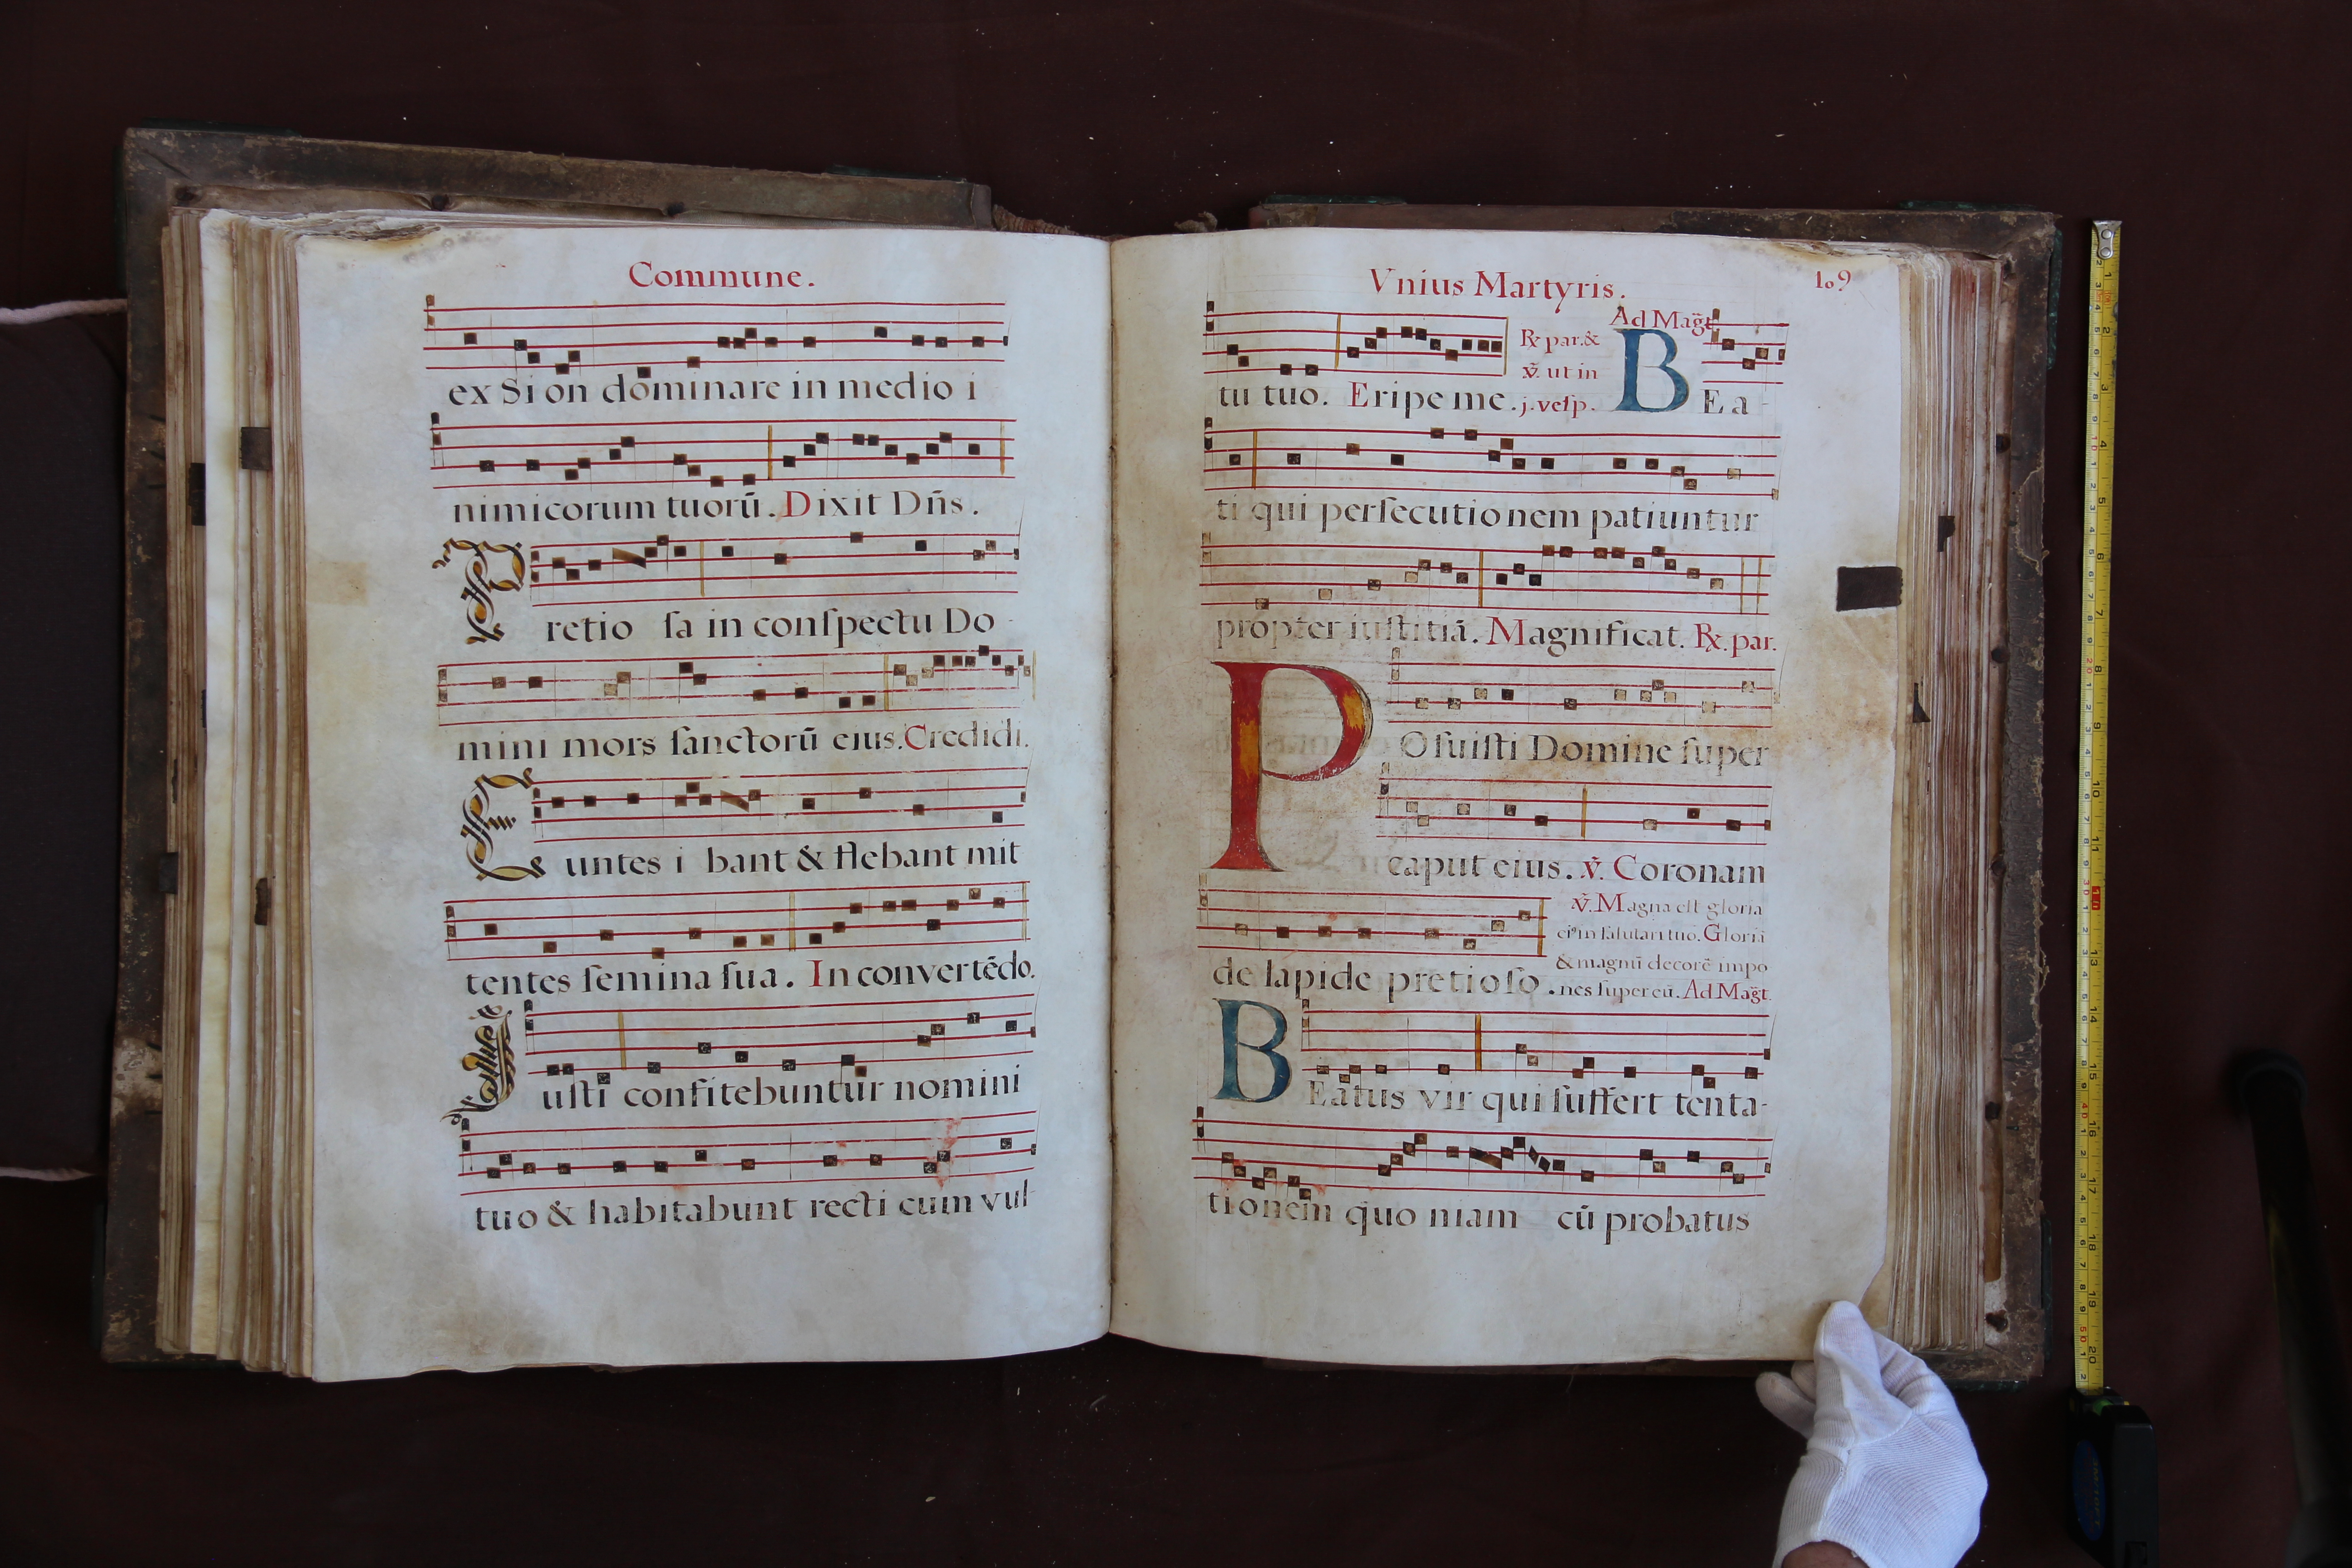 Commune.
ex Si on dominare in medio i
nimicorum tuorū. Dixit Dñs.
Pretio ſa in conſpectu Do-
mini mors ſanctorū eius. Credidi.
Euntes i bant & flebant mit
tentes ſemina ſua. In convertēdo.
Iuſti confitebuntur nomini
tuo & habitabunt recti cum vul-
Vnius Martyris. 109
Ad Mag̃t
tu tuo. Eripe me. ℟ par. & ℣. ut in j. veſp. BEa-
ti qui perſecutionem patiuntur
propter iuſtitiā. Magnificat. ℟. par.
POſuiſti Domine ſuper
caput eius. ℣. Coronam
de lapide pretioſo. ℣. Magna eſt gloria
ei⁹ in ſalutari tuo. Gloriā
& magnū decorē impo
nes ſuper eū. Ad Mag̃t.
BEatus vir qui ſuffert tenta-
tionem quo niam cū probatus